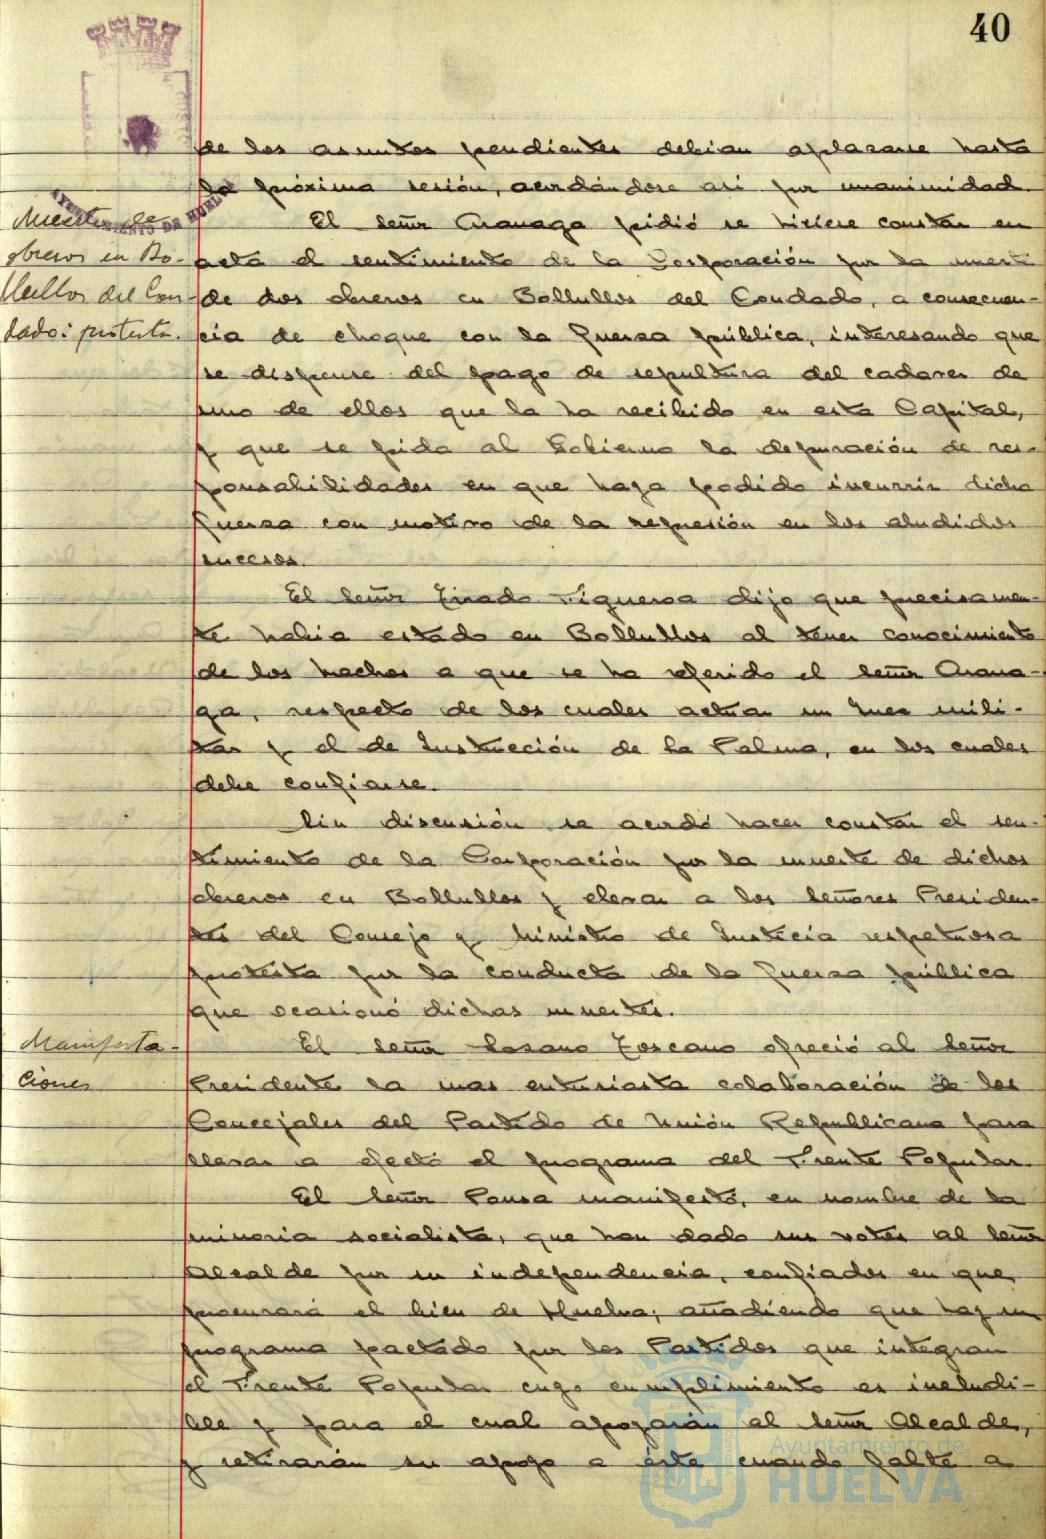 40
de los asuntos pendientes debian aplazarse hasta
la próxima sesión, acordándose asi por unanimidad.
AYUNTAMIENTO DE HUELVA
Muerte de
obreros en Bo-
llullos del Con-
dado: protesta.
El señor Aranaga pidió se hiciese constar en
acta el sentimiento de la Corporación por la muerte
de dos obreros en Bollullos del Condado, a consecuen-
cia de choque con la fuerza pública, interesando que
se dispense del pago de sepultura del cadaver de
uno de ellos que la ha recibido en esta Capital,
y que se pida al Gobierno la depuración de res-
ponsabilidades en que haya podido incurrir dicha
fuerza con motivo de la represión en los aludidos
sucesos.
El señor Tirado Figueroa dijo que precisamen-
te habia estado en Bollullos al tener conocimiento
de los hechos a que se ha referido el señor Arana-
ga, respecto de los cuales actúan un Juez mili-
tar y el de Instrucción de La Palma, en los cuales
debe confiarse.
Sin discusión se acordó hacer constar el sen-
timiento de la Corporación por la muerte de dichos
obreros en Bollullos y elevar a los señores Presiden-
tes del Consejo y Ministro de Justicia respetuosa
protesta por la conducta de la fuerza pública
que ocasionó dichas muertes.
Manifesta-
ciones
El señor Lozano Toscano ofreció al señor
Presidente la mas entusiasta colaboración de los
Concejales del Partido de Unión Republicana para
llevar a efecto el programa del Frente Popular.
El señor Ponsa manifestó, en nombre de la
minoria socialista, que han dado sus votos al señor
Alcalde por su independencia, confiados en que
procurará el bien de Huelva; añadiendo que hay un
programa pactado por los Partidos que integran
el Frente Popular cuyo cumplimiento es ineludi-
ble y para el cual apoyarán al señor Alcalde,
y retirarán su apoyo a éste cuando falte a
Ayuntamiento de
HUELVA